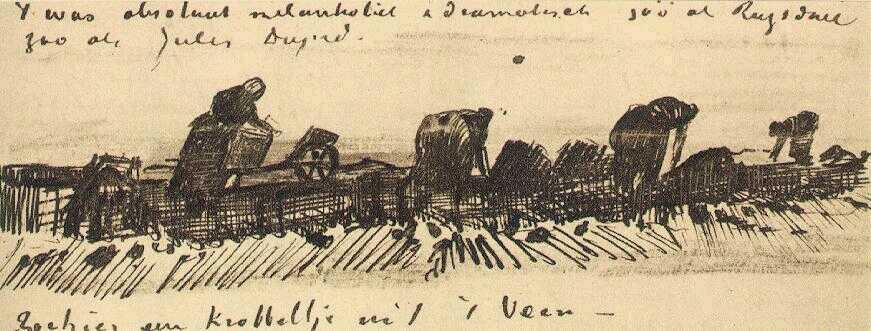 't was absoluut melankoliek & dramatisch zoo als Ruysdael
zoo als Jules Dupré.
Zoehier een Krabbeltje uit 't Veen —